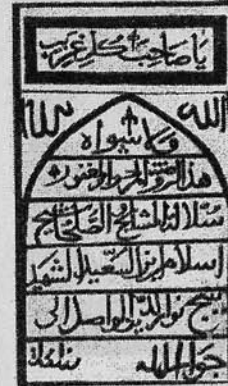 يا صاحب كل غريب
الله الله
ولا سواه
هذا المرحوم المغفور
سلالة المشايخ الصلحا شيخ
اسلام بن السعيد الشهيد
شيخ نور الدين الواصل الى
جوار الله